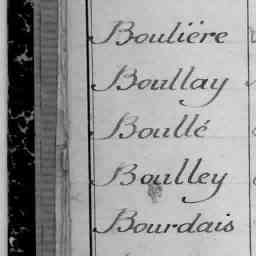 Bouliére
Boullay
Boullé
Boulley
Bourdais